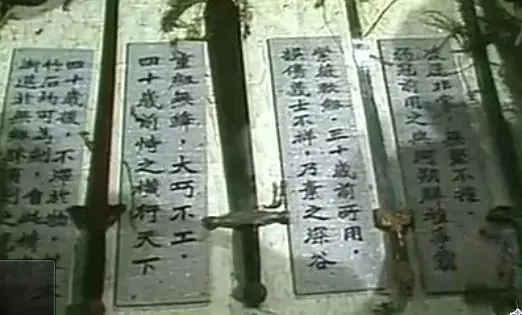 凌厲非常，無堅不摧，
弱冠前用之與河朔群雄爭霸
紫薇軟劍，三十歲前所用，
誤傷義士不祥，乃棄之深谷
重劍無鋒，大巧不工，
四十歲前恃之橫行天下
四十歲後，不滯於物，
竹石均可為劍，
漸進於無劍勝有劍之